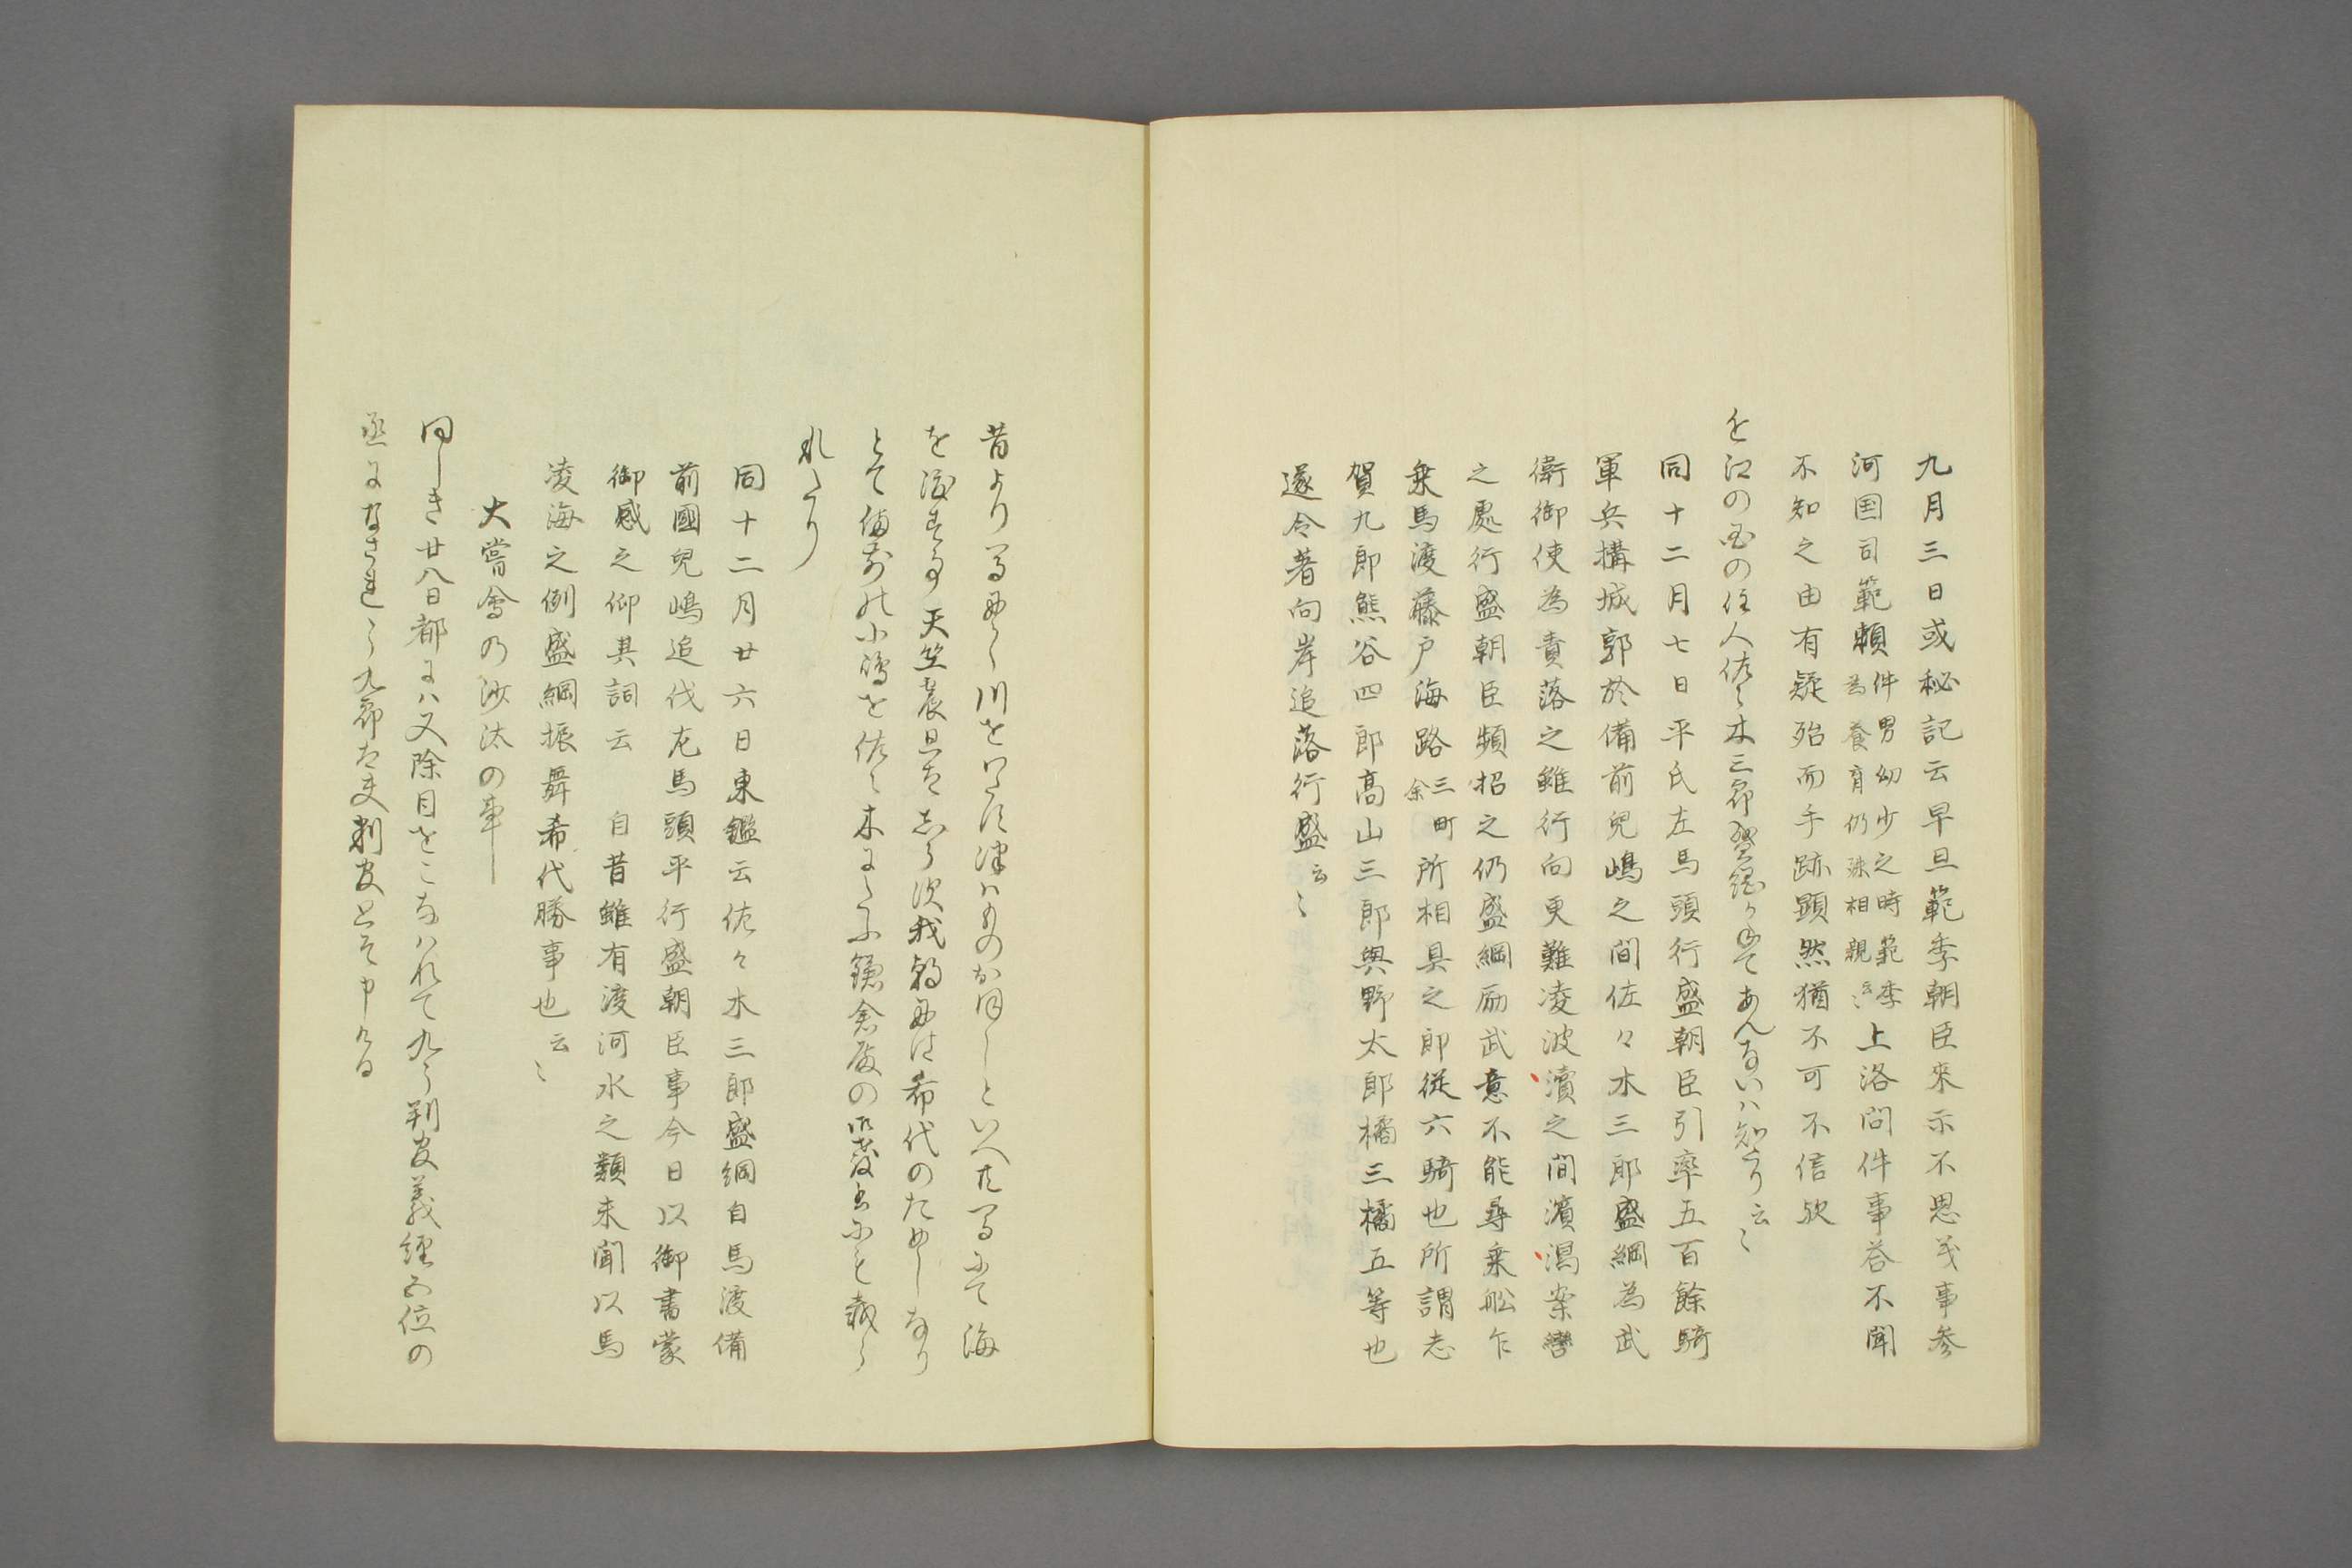 九月三日或秘記云早旦範季朝臣来示不思義事参
河国司範頼件男幼少之時範季為養育仍殊相親云〻上洛問件事答不聞
不知之由有疑殆而手跡顕然猶不可不信欤
近江の国の住人佐々木三郎盛綱かねてあんないハ知たり云〻
同十二月七日平氏左馬頭行盛朝臣引率五百餘騎
軍兵構城郭於備前兒嶋之間佐々木三郎盛綱為武
衛御使為責落之雖行向更難凌波濤之間濱潟案轡
之處行盛朝臣頻招之仍盛綱励武意不能尋乗舩乍
乗馬渡藤戸海路三町余所相具之郎従六騎也所謂志
賀九郎熊谷四郎高山三郎與野太郎橘三橘五等也
遂令著向岸追落行盛云〻
昔より馬にて川をわたす津ハものおほしといへ共馬にて海
を渡す事天竺震旦はしらす我朝には希代のためしなり
とて備前の小嶋を佐々木にたふ鎌倉殿の御教書にも載ら
れたり
同十二月廿六日東鑑云佐々木三郎盛綱自馬渡備
前國兒嶋追伐左馬頭平行盛朝臣事今日以御書蒙
御感之仰其詞云　自昔雖有渡河水之類未聞以馬
凌海之例盛綱振舞希代勝事也云〻
大嘗會の沙汰の事
同しき廿八日都にハ又除目をこなハれて九郎判官義経五位の
丞になされて九郎大夫判官とそ申ける